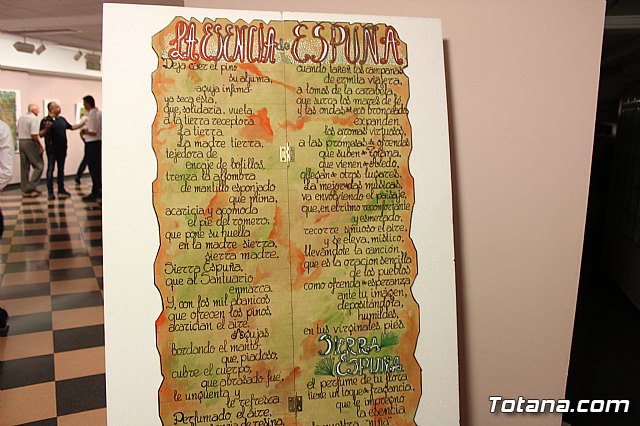 LA ESENCIA de ESPUÑA
Deja caer el pino
su aljuma,
aguja ínfima
ya seca está,
que, solidaria, vuela
a la tierra receptora
La tierra.
La madre tierra,
tejedora de
encaje de bolillos,
trenza la alfombra
de mantillo esponjado
que mima,
acaricia y acomoda
el pie del romero,
que pone su huella
en la madre sierra,
sierra madre,
Sierra Espuña,
que al Santuario
enmarca.
Y, con los mil abanicos
que ofrecen los pinos,
acarician el aire.
Agujas
bordando el manto
que, piadoso,
cubre el cuerpo,
que abrasado fue,
le unguenta y
le refresca.
Perfumado el aire,
de resina,
cuando tañen las campanas
de ermita viajera,
a lomos de la carabela
que surca los mares de fé,
y las ondas de bronceado
expanden
los aromas virtuosos,
a las promesas de ofrendas
que suben de Totana,
que vienen de Aledo,
allegan de otros lugares.
La mejor de las músicas,
va envolviendo el paisaje,
que, en el ritmo reconfortante
y esmerado,
recorre sinuoso el aire,
y se eleva, místico,
llevándote la canción
que es la oración sencilla
de los pueblos
como ofrenda de esperanza
ante tu imagen,
depositándola,
humildes,
en tus virginales pies.
SIERRA
ESPUÑA
el perfume de tu flora
tiene un toque de fragancia,
que le impregnó
la esencia
de nuestra "niña"
Totana.com